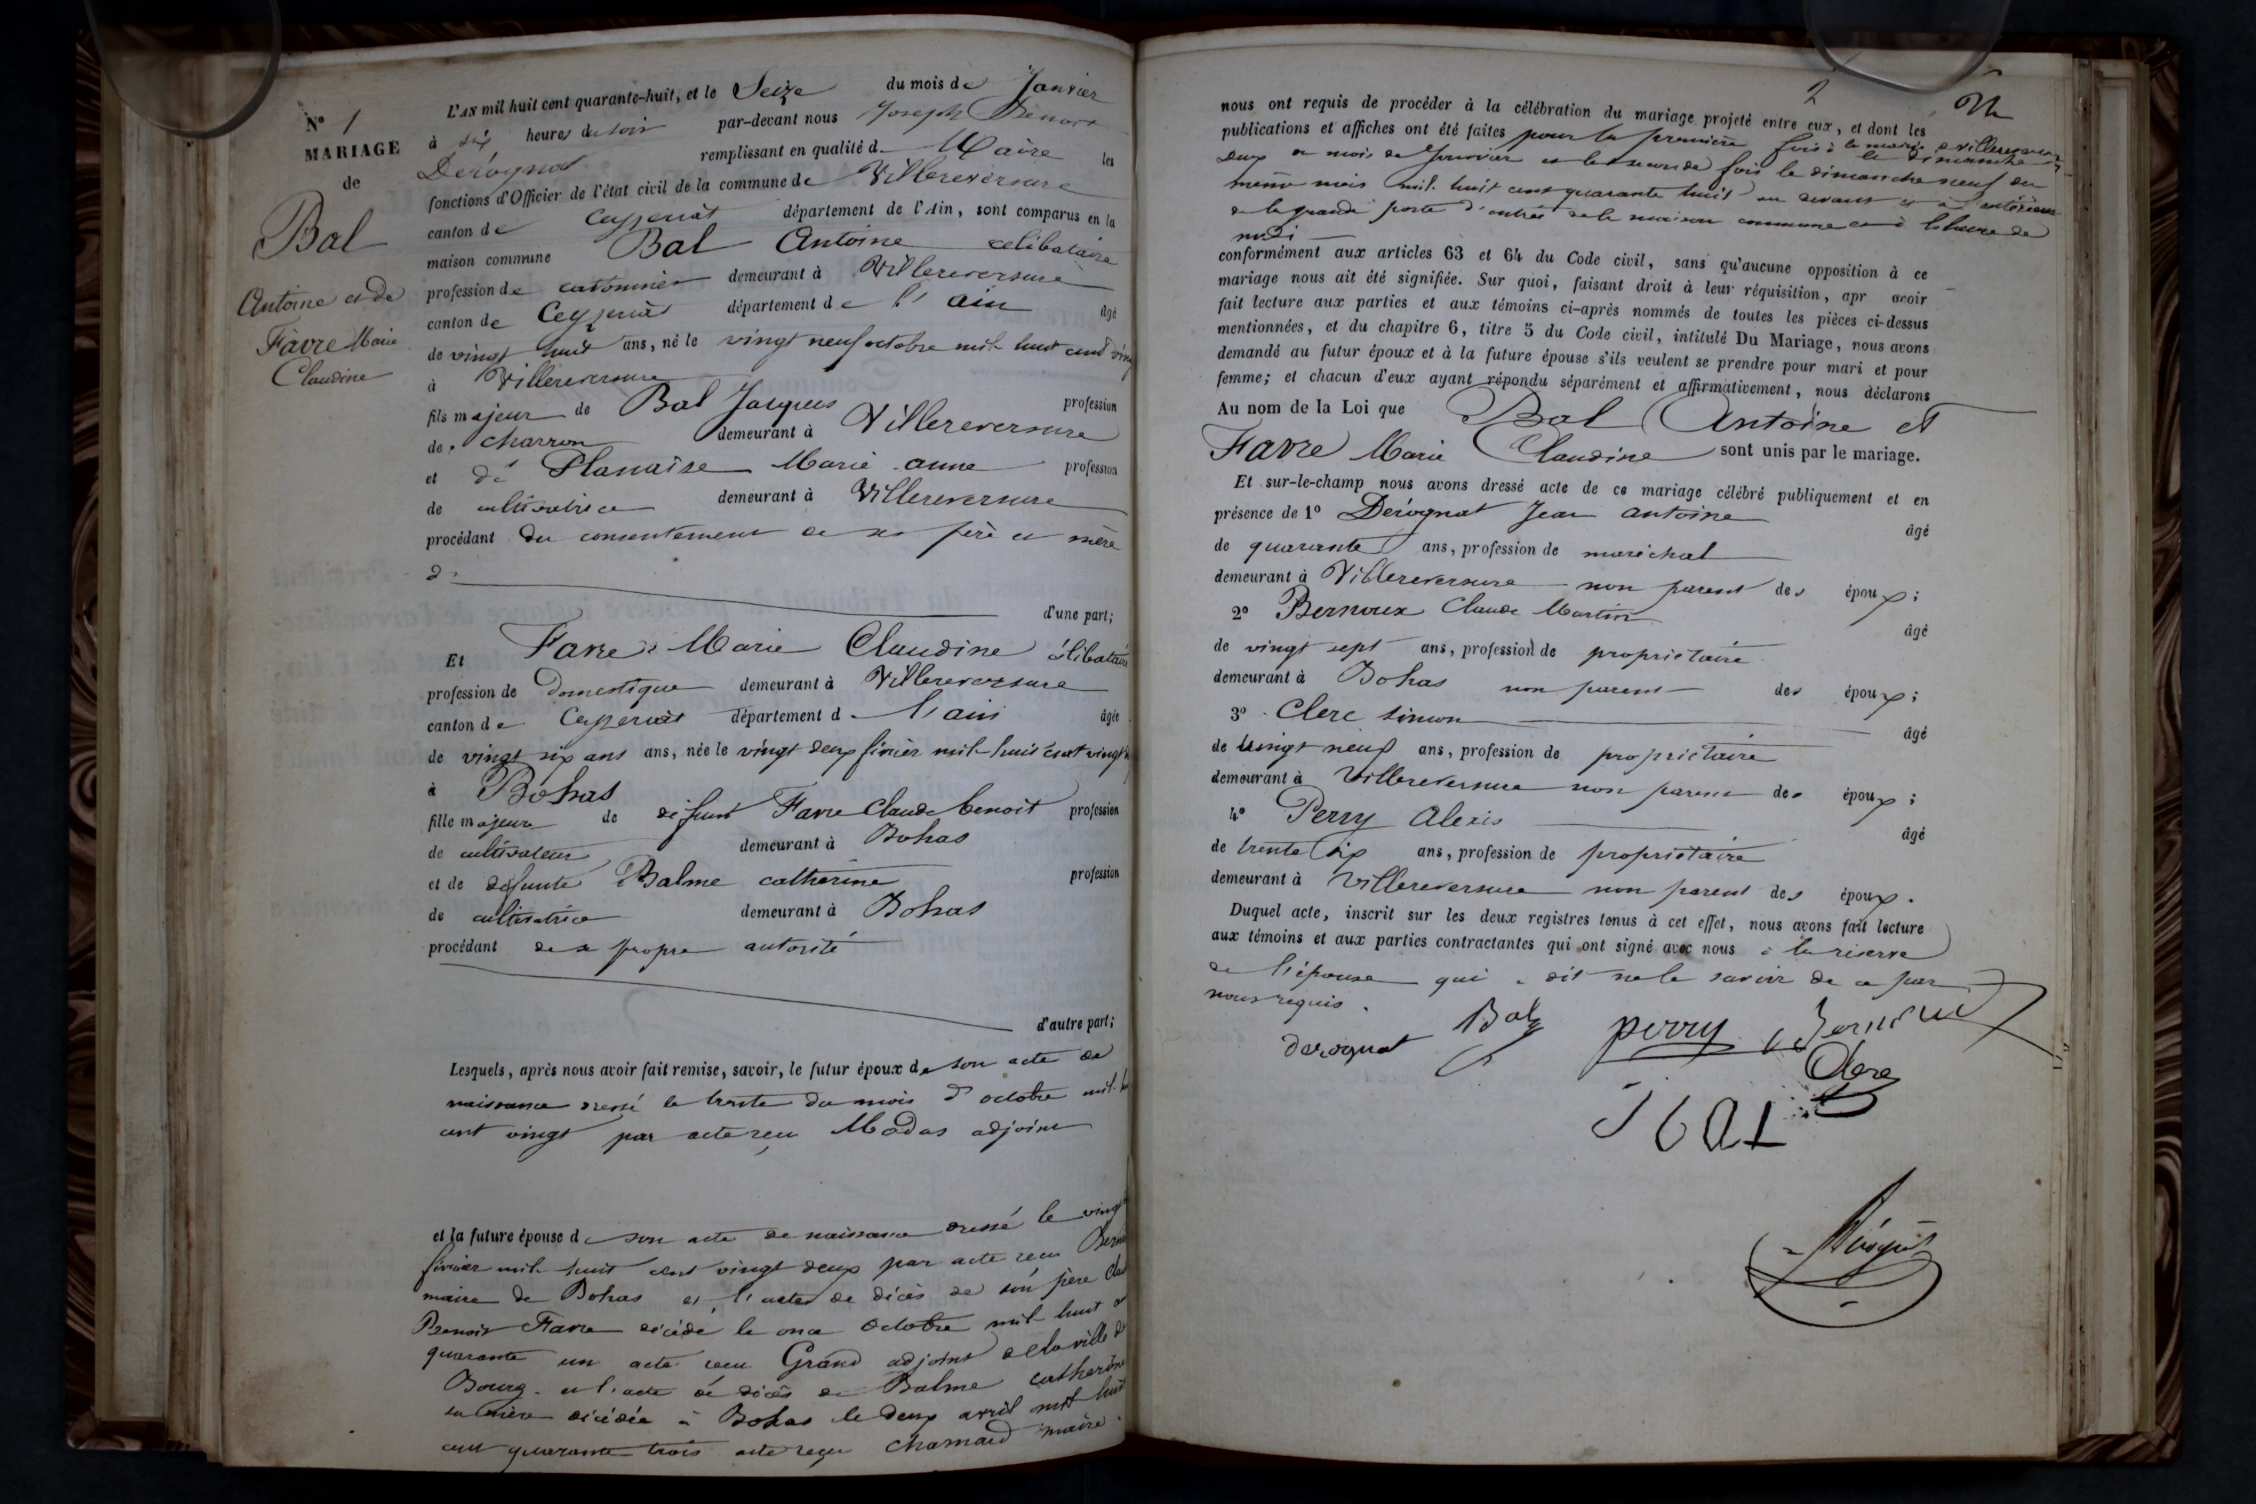 N° 1
MARIAGE
de
Bal
Antoine et de
Favre Marie
Claudine
L'AN mil huit cent quarante-huit, et le Seize du mois de Janvier
à six heures du soir par-devant nous Joseph Benoit
Dérognat remplissant en qualité de Maire les
fonctions d'Officier de l'état civil de la commune de Villereversure
canton de Ceyzeriat département de l'Ain, sont comparus en la
maison commune Bal Antoine célibataire
profession de cantonnier demeurant à Villereversure
canton de Ceyzeriat département de l'ain âgé
de vingt huit ans, né le vingt neuf octobre mil huit cent
à Villereversure
fils majeur de Bal Jacques profession
de charron demeurant à Villereversure
et de Planaise Marie anne profession
de cultivatrice demeurant à Villereversure
procédant du consentement de ses père et mère
d'une part;
Et Favre Marie Claudine célibataire
profession de Domestique demeurant à Villereversure
canton de Ceyzeriat département d l'ain âgée
de vingt six ans ans, née le vingt deux février mil huit cent vingt
à Bohas
fille majeure de défunt Favre Claude benoit profession
de cultivateur demeurant à Bohas
et de défunte Balme catherine profession
de cultivatrice demeurant à Bohas
procédant de sa propre autorité
d'autre part;
Lesquels, après nous avoir fait remise, savoir, le futur époux de son acte de
naissance dressé le trente du mois d'octobre mil
cent vingt par acte reçu Modas adjoint
et la future épouse de son acte de naissance dressé le vingt
février mil huit cent vingt deux par acte reçu
maire de Bohas et l'acte de décès de son père
Benoit Favre décédé le onze Octobre mil huit
quarante un acte reçu Grand adjoint de la ville de
Bourg. et l'acte de décès de Balme catherine
sa mère décédée à Bohas le deux avril mil huit
cent quarante trois acte reçu Chamard maire.
2
nous ont requis de procéder à la célébration du mariage projeté entre eux, et dont les
publications et affiches ont été faites pour la première fois à la mairie de villereversure
le dimanche
deux du mois de Janvier et la seconde fois le dimanche neuf du
même mois mil huit cent quarante huit au devant et à l'extérieur
de la grande porte d'entrée de la maison commune et à l'heure de
midi
conformément aux articles 63 et 64 du Code civil, sans qu'aucune opposition à ce
mariage nous ait été signifiée. Sur quoi, faisant droit à leur réquisition, apr avoir
fait lecture aux parties et aux témoins ci-après nommés de toutes les pièces ci-dessus
mentionnées, et du chapitre 6, titre 5 du Code civil, intitulé Du Mariage, nous avons
demandé au futur époux et à la future épouse s'ils veulent se prendre pour mari et pour
femme; et chacun d'eux ayant répondu séparément et affirmativement, nous déclarons
Au nom de la Loi que Bal Antoine et
Favre Marie Claudine sont unis par le mariage.
Et sur-le-champ nous avons dressé acte de ce mariage célébré publiquement et en
présence de 1° Dérognat Jean antoine âgé
de quarante ans, profession de maréchal
demeurant à Villereversure non parent des époux;
2° Bernoux Claude Martin âgé
de vingt sept ans, profession de propriétaire
demeurant à Bohas non parent des époux;
3° Clerc simon âgé
de vingt neuf ans, profession de propriétaire
demeurant à Villereversure non parent des époux;
4° Perry Alexis âgé
de trente six ans, profession de propriétaire
demeurant à Villereversure non parent des époux.
Duquel acte, inscrit sur les deux registres tenus à cet effet, nous avons fait lecture
aux témoins et aux parties contractantes qui ont signé avec nous à la réserve
de l'épouse qui a dit ne le savoir de ce par
nous requis.
derognat Bal perry Bernoux
Clerc